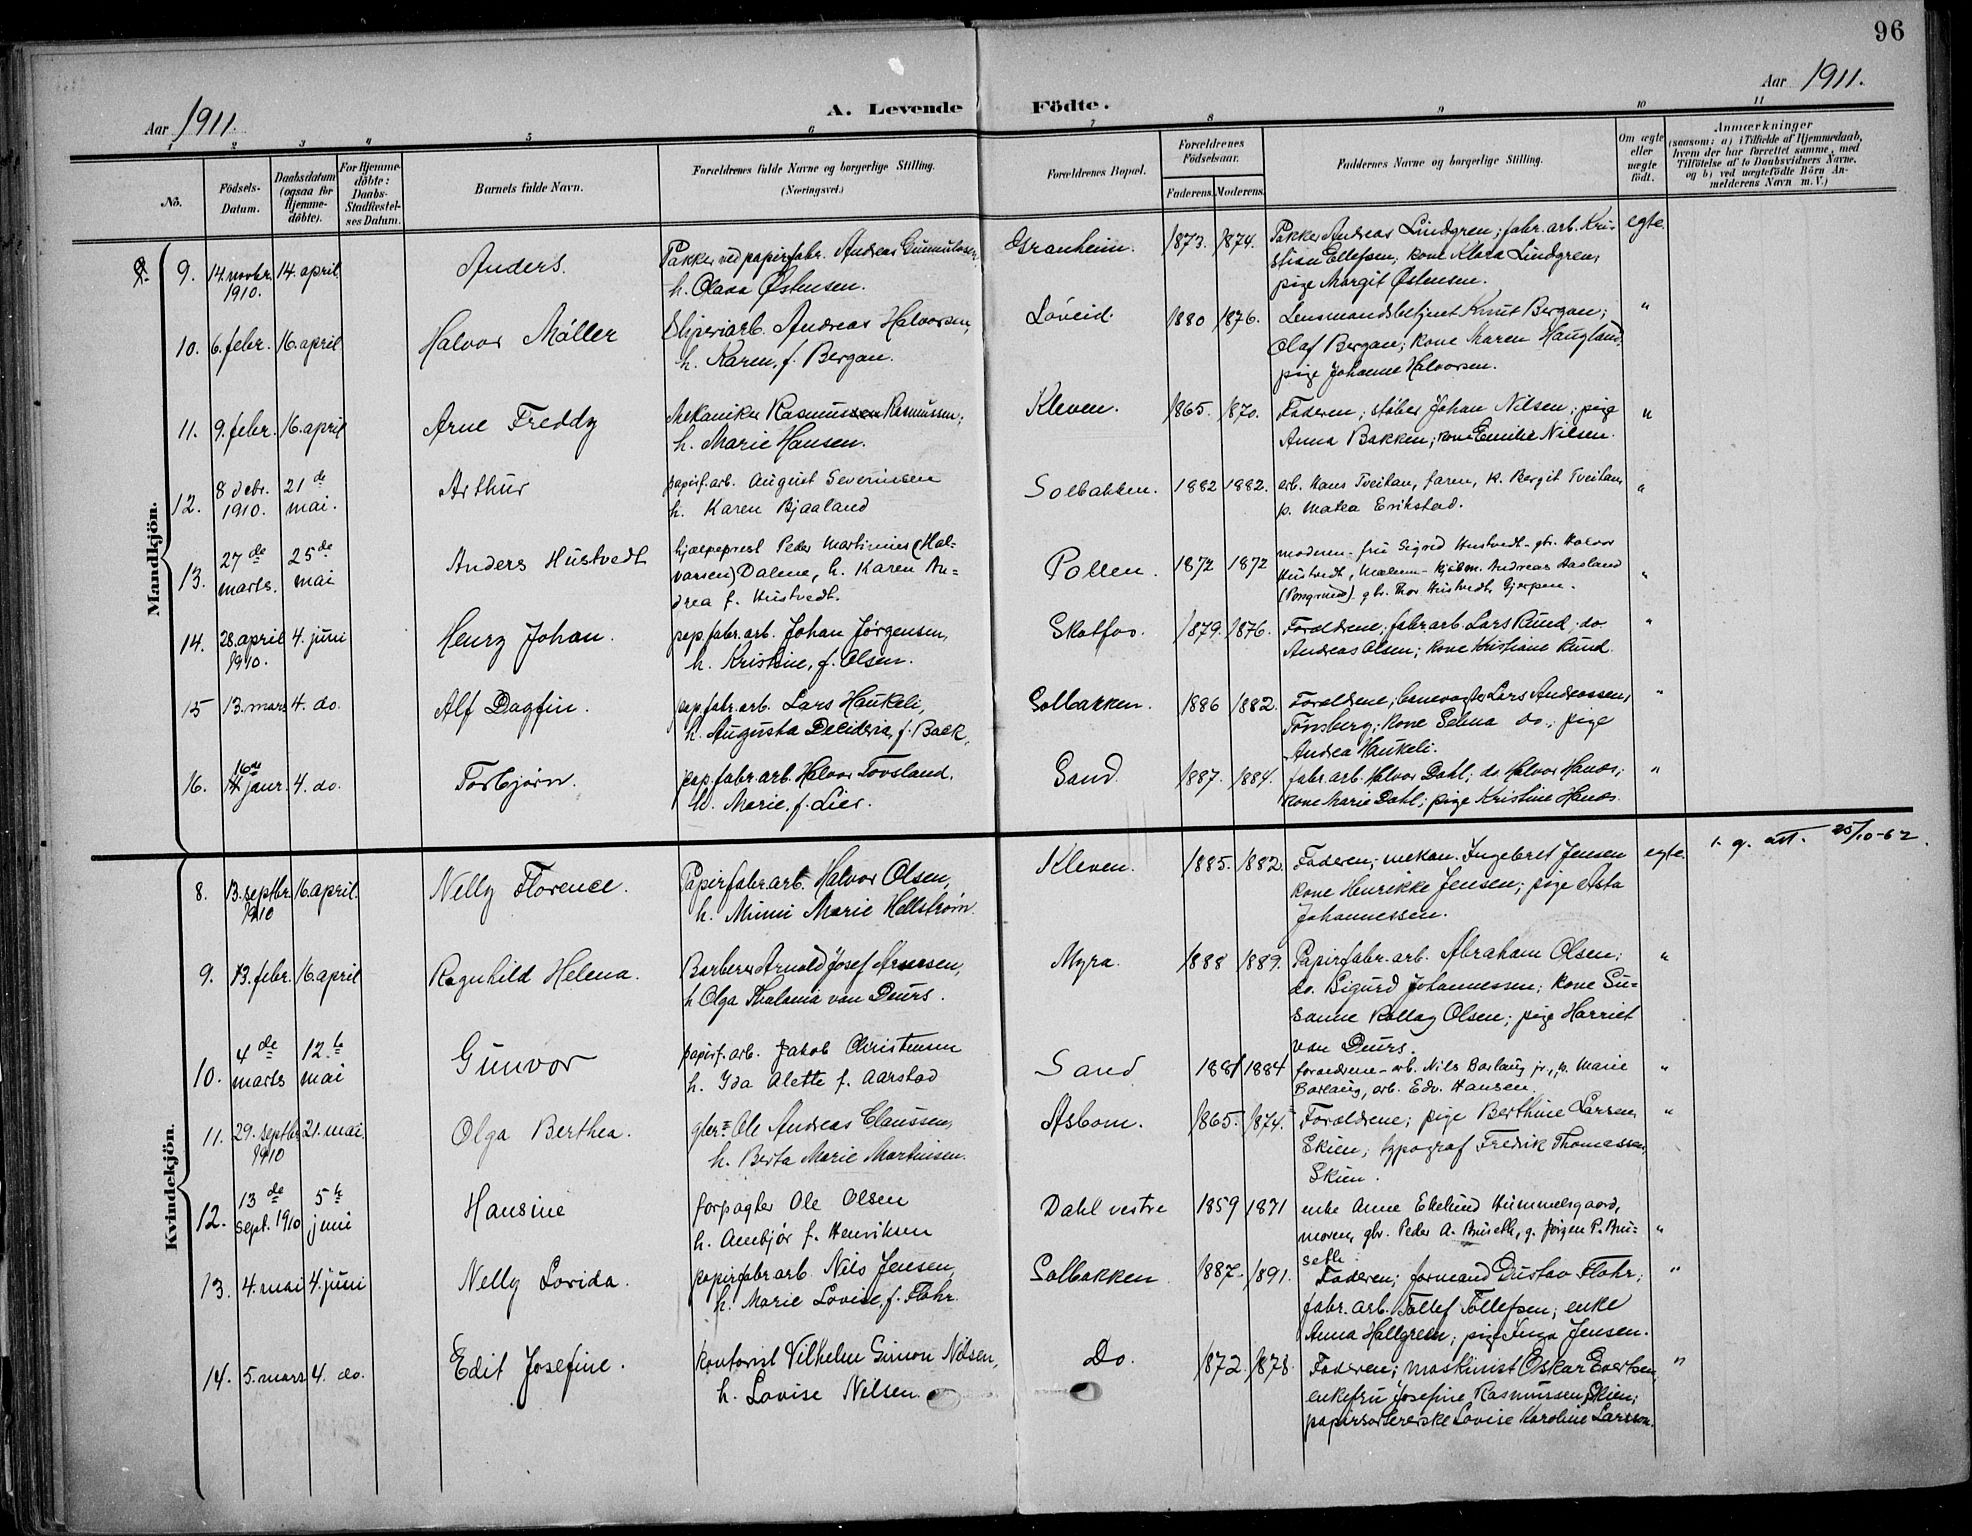 96
Aar 1911.
A. Levende Födte.
Aar 1911.
1 2 3 4 5 6 7 8 9 10 11
Nö.
Födsels-
Datum.
Daabsdatum
(ogsaa for
Hjemme-
döbte).
For Hjemme-
döbte:
Daabs-
Stadfæstel-
ses Datum.
Barnets fulde Navn.
Forældrenes fulde Navne og borgerlige Stilling.
(Næringsvei.)
Forældrenes Bopæl.
Forældrenes
Födselsaar.
Faderens. Moderens.
Faddernes Navne og borgerlige Stilling.
Om ægte
eller
uægte
födt.
Anmærkninger
(saasom: a) i Tilfælde af Hjemmedaab,
hvem der har forrettet samme, med
Tilföielse af to Daabsvidners Navne,
og b) ved uægtefödte Börn An-
melderens Navn m. V.)
Mandkjön.
9. 14. novbr. 1910. 14. april. Anders.
Pakker ved papirfabr. Andreas
h. Olava Østensen.
Granheim. 1873. 1874.
Pakker Andreas Lindgren; fabr. arb. Kri-
stian Ellefsen; kone Klara Lindgren;
pige Margit Østensen.
egte.
10. 6. febr. 16. april Halvor Møller
Sliperiarb. Andreas Halvorsen,
h. Karen, f. Bergan.
Löveid. 1880 1876.
Lensmandsbetjent Knut Bergan;
Olaf Bergan; kone Maren Haugland;
pige Johanne Halvorsen.
"
11. 9. febr. 16. april Arne Freddy
Mekaniker Rasmus Rasmussen;
h. Marie Hansen.
Kleven. 1865. 1870.
Faderen; støber Johan Nilsen; pige
Anna Bakken; kone Emilie Nilsen.
"
12. 8 debr. 1910. 21 de mai. Arthur
papirf. arb. August Severinsen
h. Karen Bjaaland
Solbakken. 1882 1882.
arb. Hans Tveitan, faren, k. Bergit Tveitan,
p. Matea Erikstad.
"
13. 27 de marts. 25 de mai Anders Hustvedt
hjælpeprest Peder Martinius (Hal-
vorsen) Dalene, h. Karen An-
drea f. Hustvedt.
Pollen. 1872 1872
moderen - fru Sigrid Hustvedt - gbr. Halvor
Hustvedt, Mælum - kjøbm. Andreas Aasland
(Porsgrund) - gbr. Thor Hustvedt, Gjerpen.
"
14. 28. april 1910. 4. juni Henry Johan.
pap. fabr. arb. Johan Jørgensen,
h. Kristine, f. Olsen.
Skotfos. 1879. 1876.
Forældrene; fabr. arb. Lars Rund. do.
Andreas Olsen; kone Kristiane Rund.
"
15 13. mars 4. do. Alf Dagfin.
pap. fabr. arb. Lars Haukeli,
h. Augusta Decideria, f. Back.
Solbakken. 1886 1882.
Forældrene; banevogter Lars Andreassen,
Tønsberg; kone Selma do.; pige
Andrea Haukeli.
"
16. 16de janr. 4. do. Torbjørn.
pap. fabr. arb. Halvor Tovsland.
h. Marie, f. Lier.
Sand. 1887. 1884.
fabr. arb. Halvor Dahl; do Halvor Hanos;
kone Marie Dahl; pige Kristine Hanos.
"
Kvindekjön.
8. 13. septbr. 1910 16. april. Nelly Florence.
Papirfabr. arb. Halvor Olsen,
h. Mimi Marie Hellstrøm.
Kleven. 1885. 1882.
Faderen; mekan. Ingebret Jensen
kone Henrikke Jensen; pige Asta
Johannessen.
egte. 1. g. att. 25/10-62.
9. 13. febr. 16. april Ragnhild Helena.
Barberer Arnold Josef
h Olga Thalania van Deurs.
Myra. 1888 1889.
Papirfabr. arb. Abraham Olsen;
do. Sigurd Johannessen; kone Su-
sanne Rollag Olsen; pige Harriet
van Deurs.
"
10. 4 de marts 12. te mai Gunvor
papirf. arb. Jakob Christensen
h. Ida Alette f. Aarstad
Sand 1881 1884
forældrene - arb. Nils Barlaug jr., k. Marie
Barlaug, arb. Edv. Hansen.
"
11. 29. septbr. 1910 21. mai. Olga Berthea.
gbr. Ole Andreas Claussen,
h. Berta Marie Martinsen.
Asbom. 1865. 1874.
Forældrene; pige Berthine Larsen,
Skien; typograf Fredrik Thomassen,
Skien.
"
12. 13 de sept. 1910 5 te juni Hansine
forpagter Ole Olsen
h. Annbjør f. Henriksen
Dahl vestre 1859 1871
enke Anne Ekelund Hummelsgaard,
moren, gbr. Peder A. Bruseth, g. Jørgen P. Bru-
seth
"
13. 4. mai 4. juni Nelly Lovida.
papirfabr. arb. Nils Jensen,
h. Marie Lovise, f. Flohr.
Solbakken 1887. 1891.
Faderen; formand Gustav Flohr;
fabr. arb. Tollef Tollefsen; enke
Anna Hallgreen; pige Inga Jensen.
"
14. 5. mars 4. do. Edit Josefine.
Kontorist Vilhelm Simon Nilsen,
h. Lovise Nilsen.
Do. 1872. 1878.
Faderen; maskinist Oskar Evertsen,
enkefru Josefine Rasmussen, Skien;
papirsortererske Lovise Karoline Larsson.
"